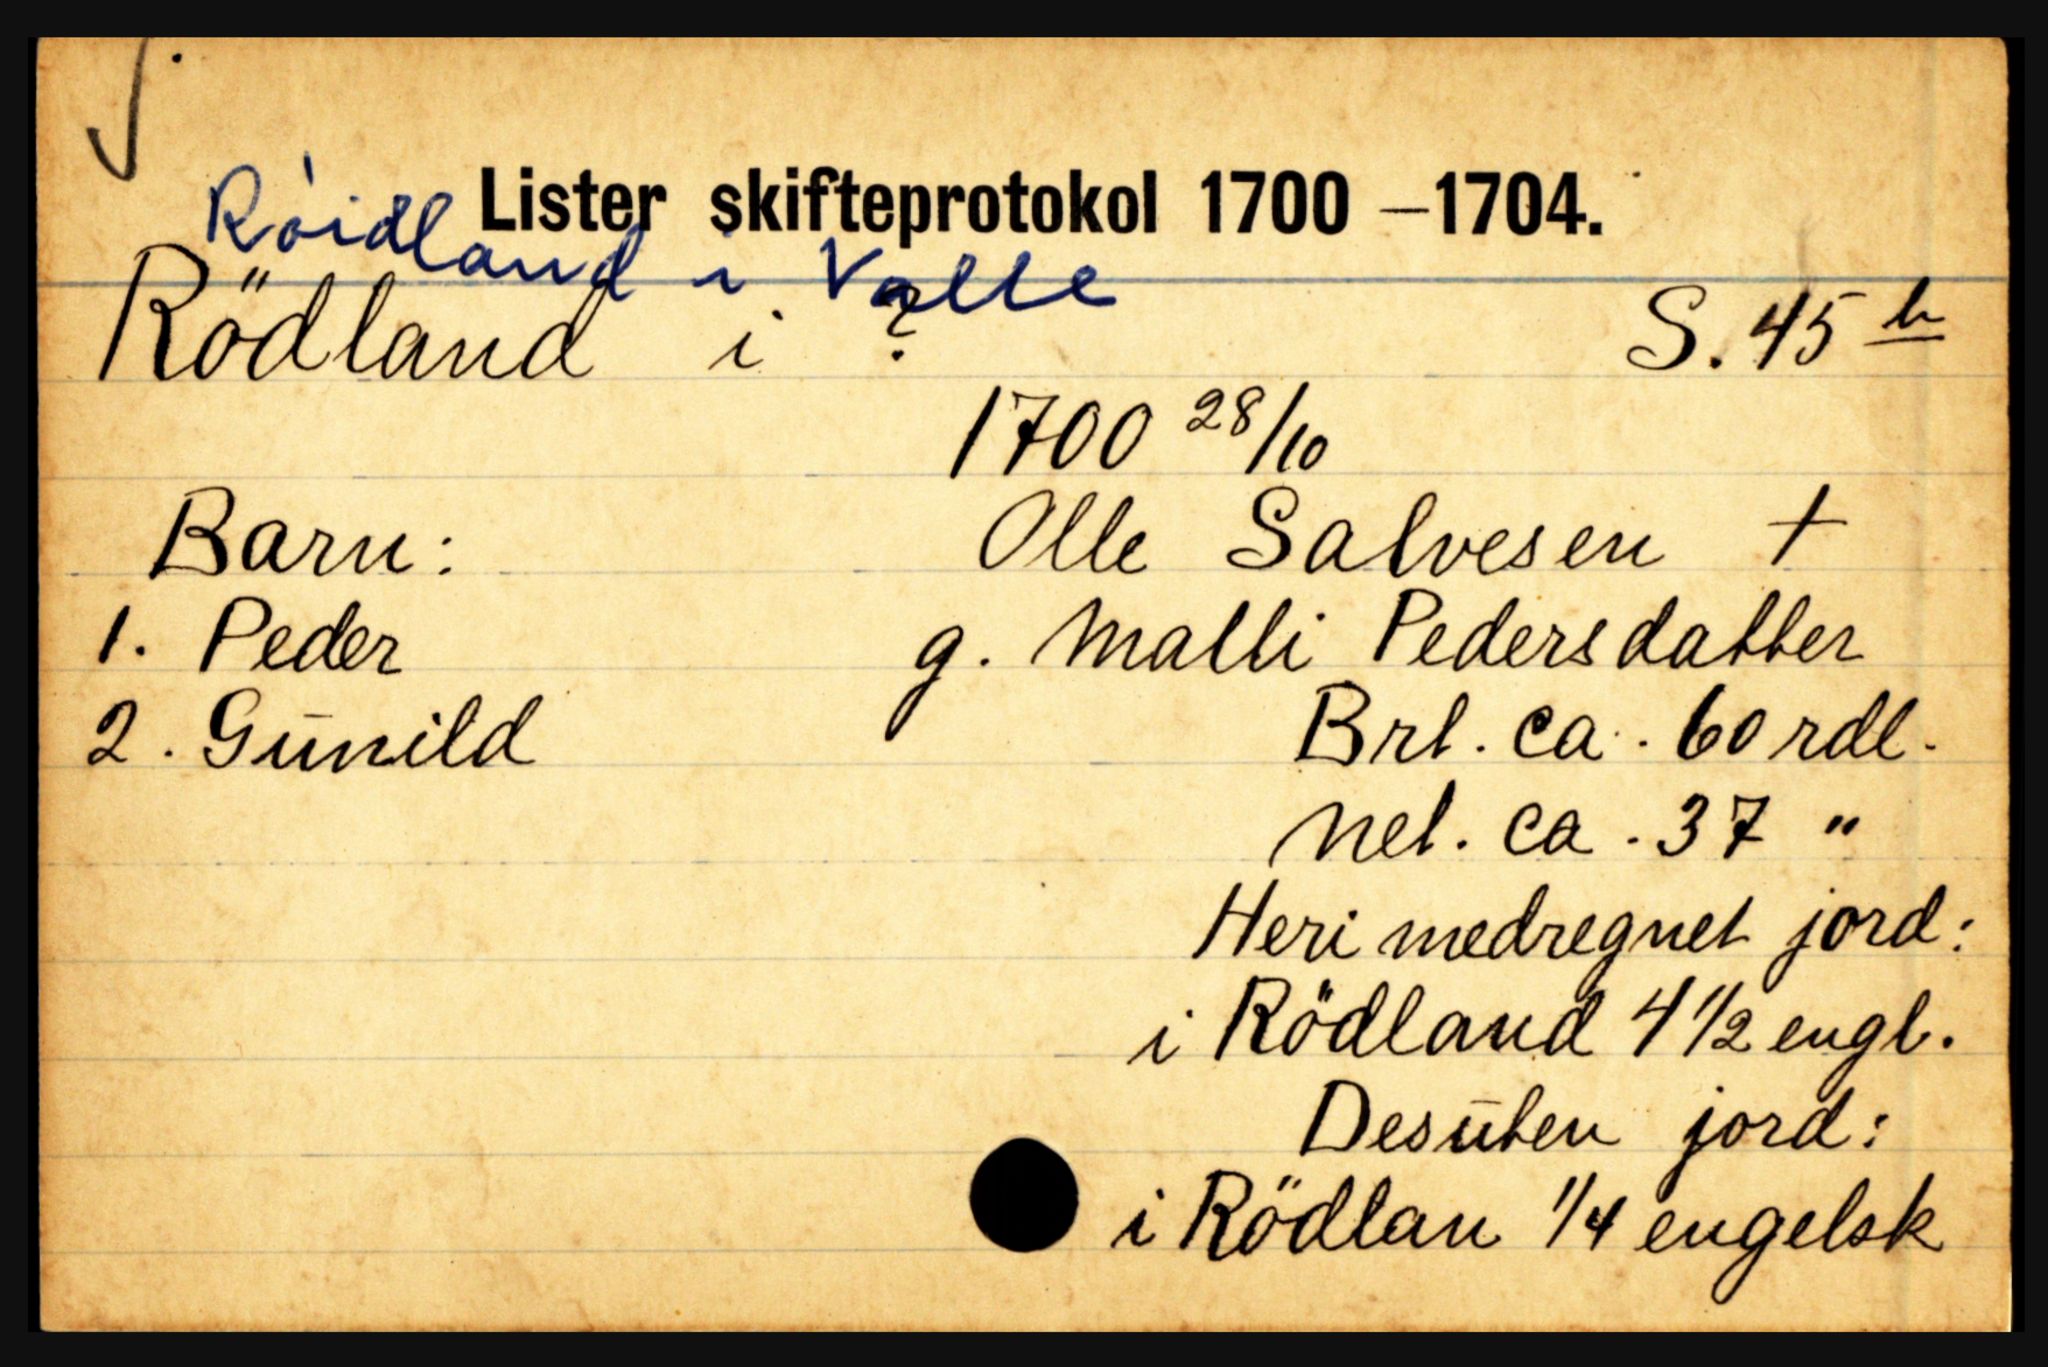 Lister skifteprotokol 1700 – 1704.
Röidland i Valle
Rödland i ? S. 45 b
1700 28/10
Barn: Olle Salvesen +
1. Peder g. Malli Pedersdatter
2. Gūnild Brt. ca. 60 rdl.
Net. ca. 37 "
Heri medregnet jord:
i Rödland 4 1/2 engl.
Desūten jord:
i Rödlan 1/4 engelsk